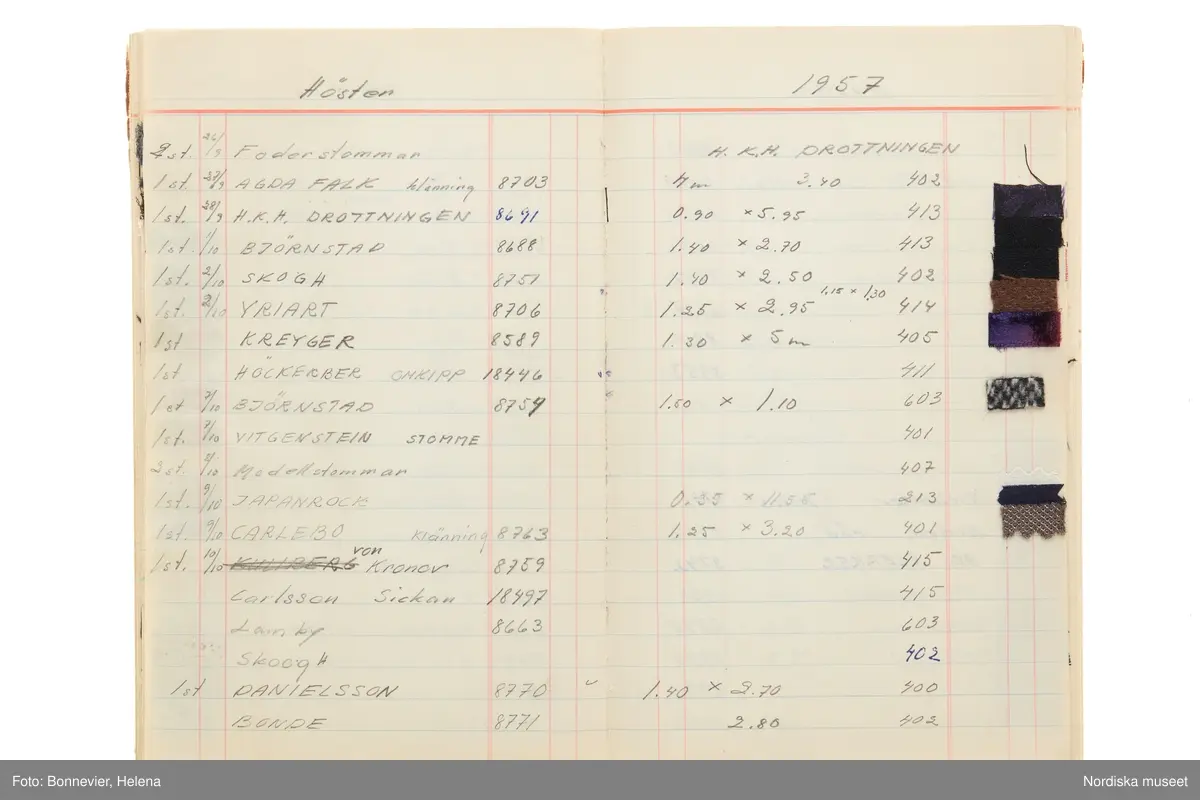 Hösten 1957
2st. 26/9 Foderstommar H.K.H. DROTTNINGEN
1st. 27/9 AGDA FALK klänning 8703 4m 3.40 402
1st. 28/9 H.K.H. DROTTNINGEN 8691 0.90 × 5.95 413
1st. 1/10 BJÖRNSTAD 8688 1.40 × 2.70 413
1st. 2/10 SKOGH 8751 1.40 × 2.50 402
1st. 2/10 YRIART 8706 1.25 × 2.95 1.15 × 1.30 414
1st KREYGER 8589 1.30 × 5m 405
1st HÖCKERBER 18446 411
1st 7/10 BJÖRNSTAD 8754 1.50 × 1.10 603
1st. 7/10 VITGENSTEIN STOMME 401
2st. 8/10 Modellstommar 407
1st. 9/10 JAPANROCK 213
1st. 9/10 CARLEBO Klänning 8763 1.25 × 3.20 401
1st. 10/10 von Kronov 8759 415
Carlsson Sickan 18497 415
Lamby 8663 603
SkoogH 402
1st DANIELSSON 8770 1.40 × 2.70 400
BONDE 8771 2.80 402
Foto: Bonnevier, Helena Nordiska museet